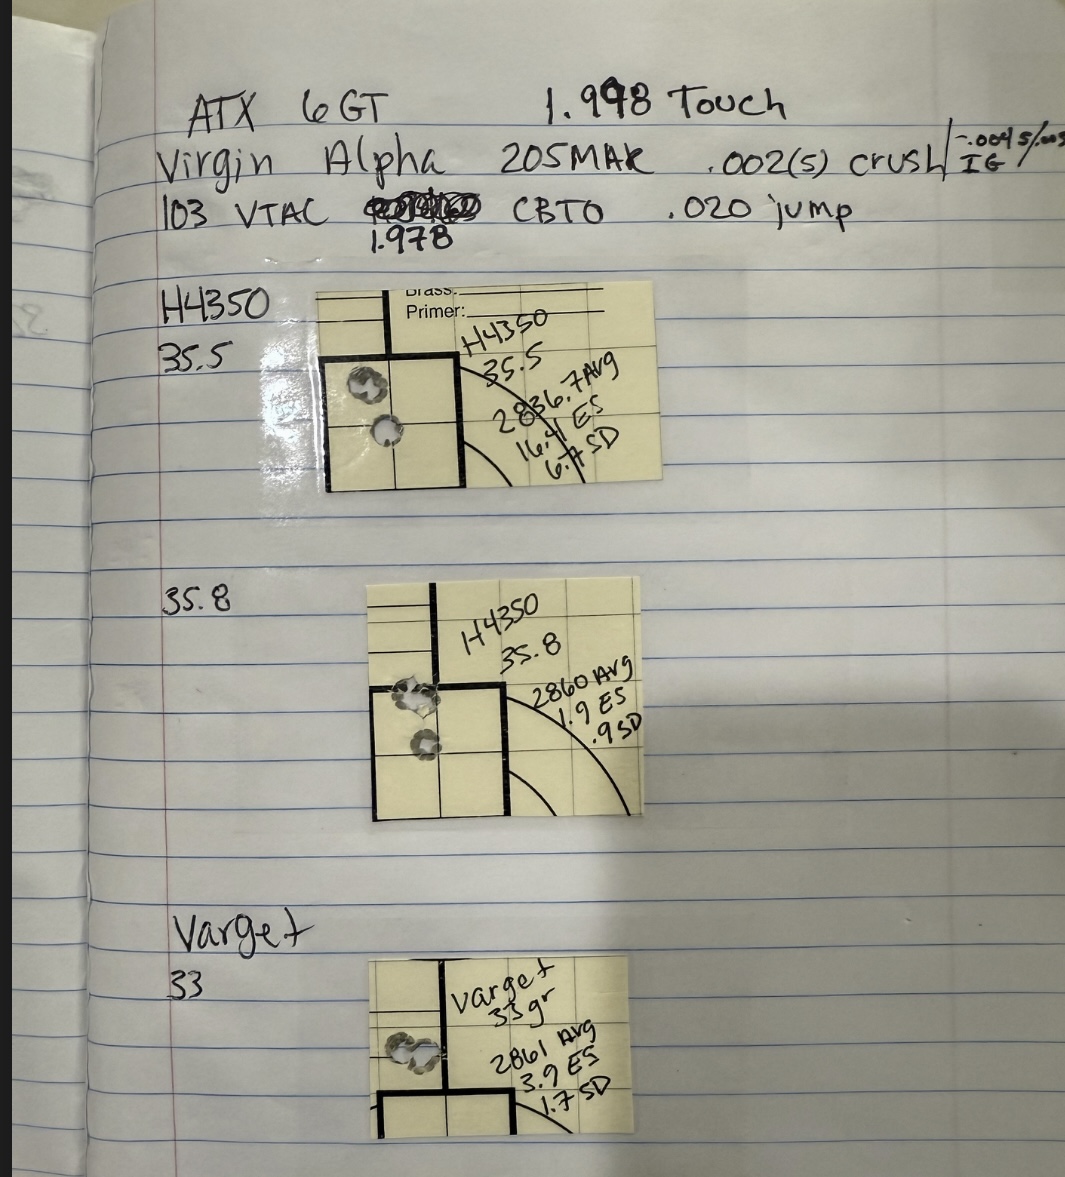 ATX 6GT 1.998 Touch
Virgin Alpha 205MAR .002(s) crush/ -.004 s/.005
IG
103 VTAC CBTO .020 jump
1.978
H4350
35.5
Brass:
Primer:
H4350
35.5
2836.7 Avg
16.4 ES
6.7 SD
35.8
H4350
35.8
2860 Avg
1.9 ES
.9 SD
Varget
33
Varget
33 gr
2861 Avg
3.9 ES
1.7 SD